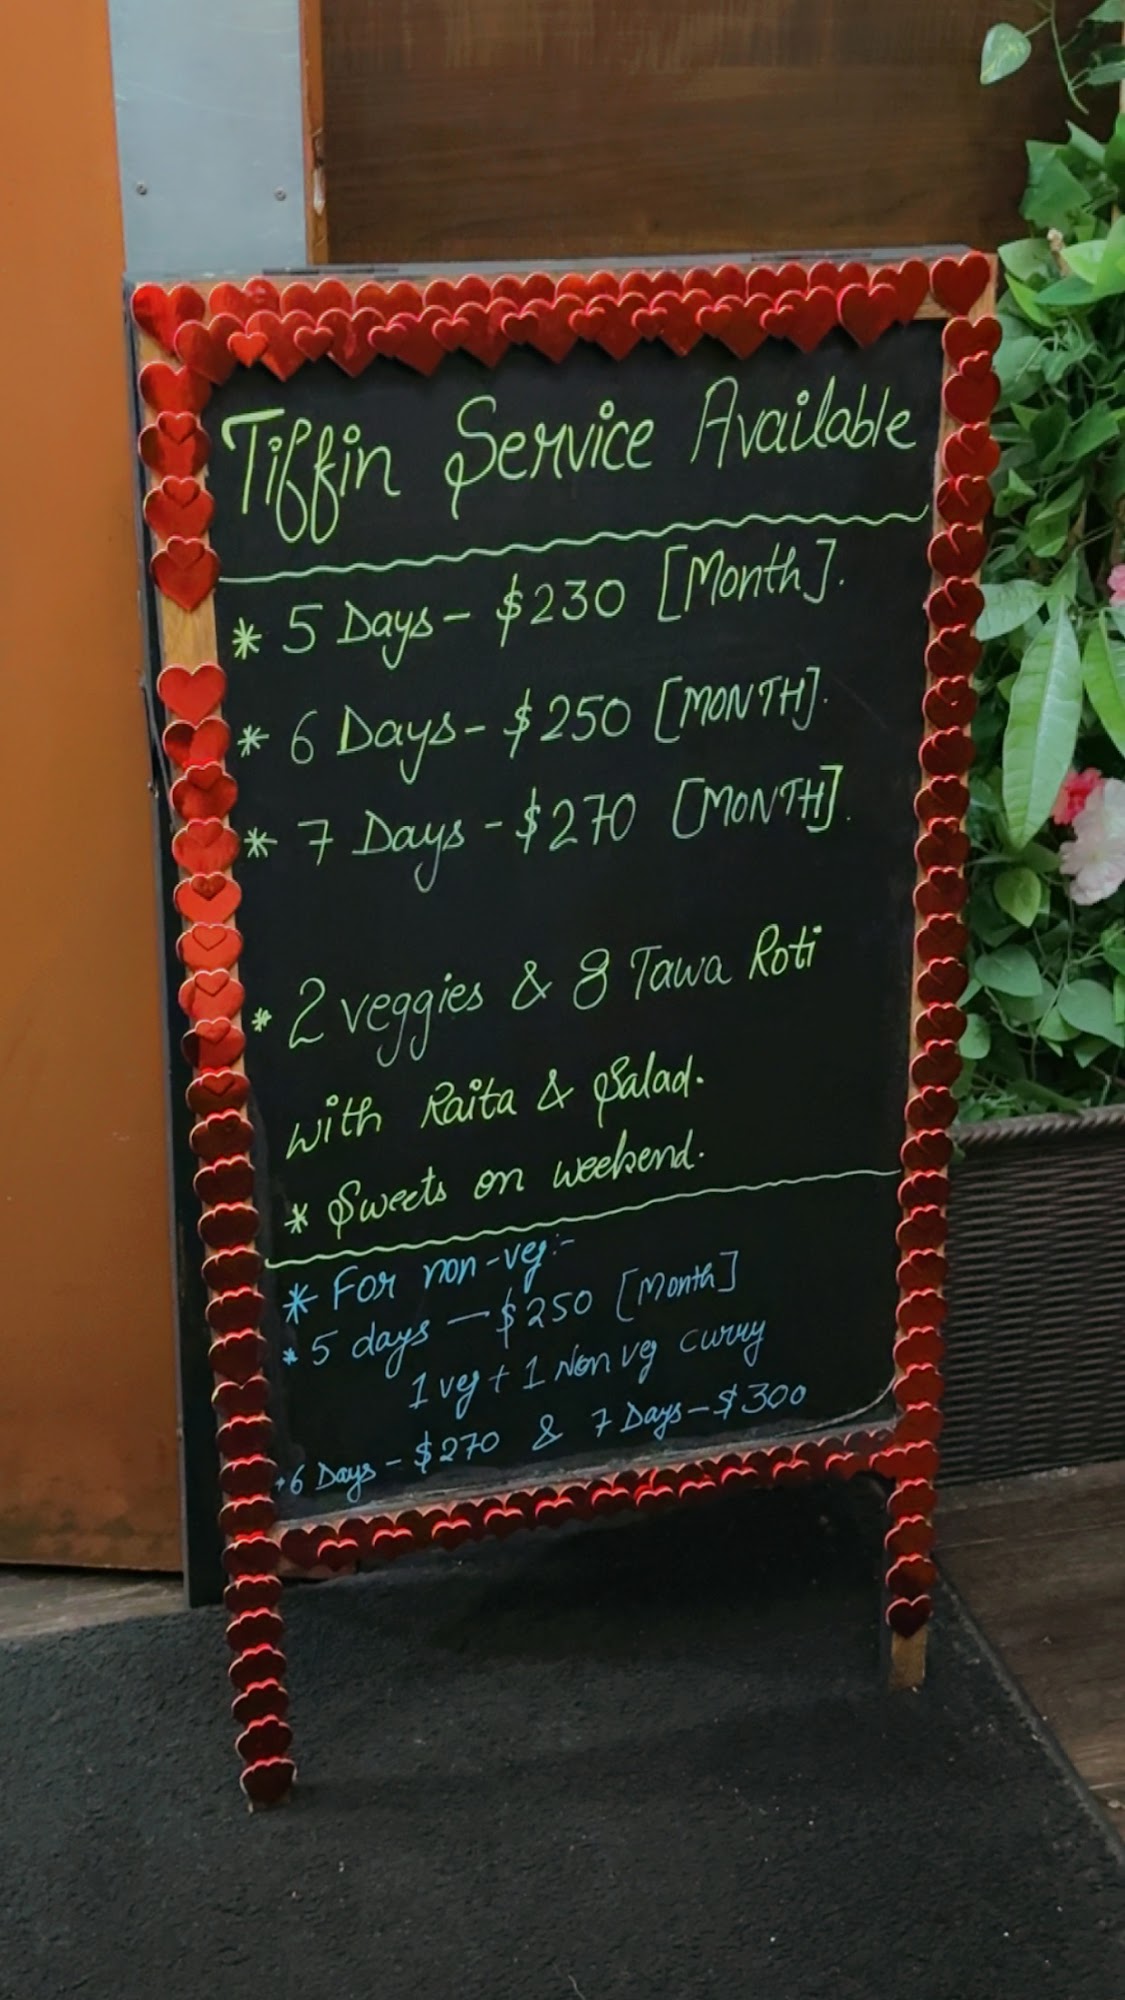 Tiffin Service Available
* 5 Days - $230 [Month].
* 6 Days - $250 [MONTH].
* 7 Days - $270 [MONTH].
* 2 veggies & 8 Tawa Roti
with Raita & Salad.
* Sweets on weekend.
* For non-veg:-
* 5 days - $250 [Month]
1 veg + 1 Non veg curry
* 6 Days - $270 & 7 Days - $300